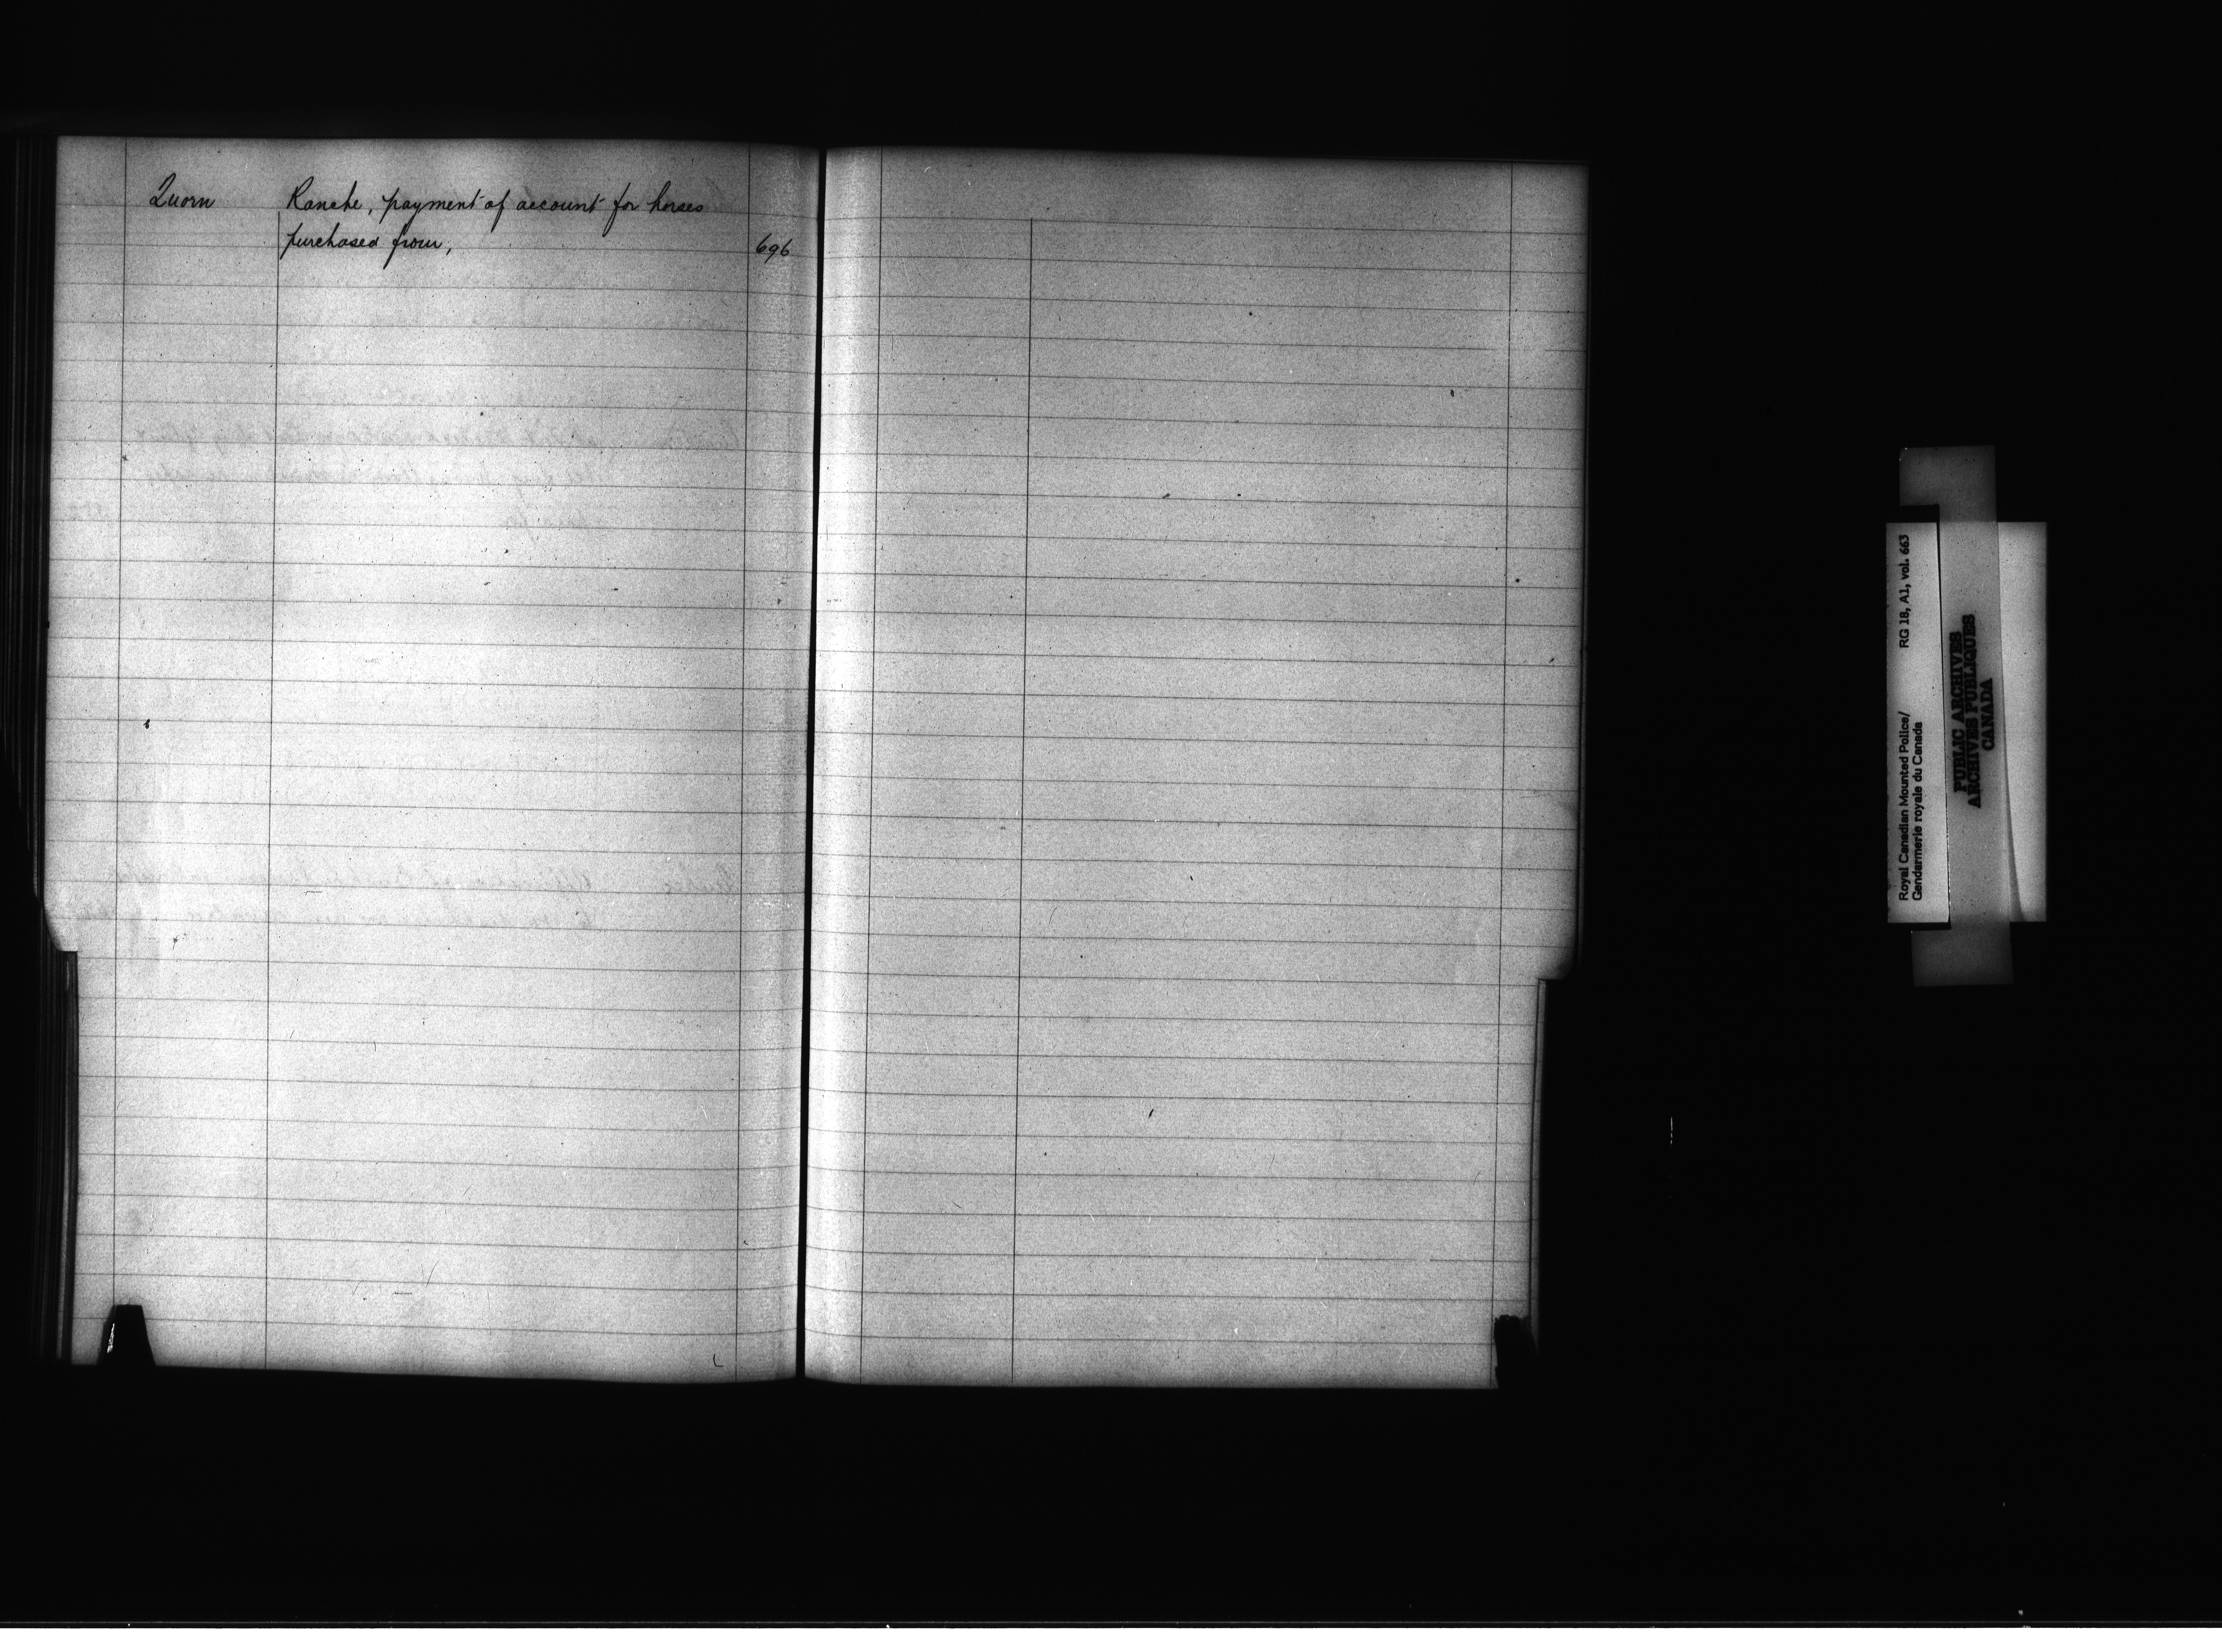 Quorn Ranche, payment of account for horses
purchased from, 696
Royal Canadian Mounted Police/ RG 18, A1, vol. 663
Gendarmerie royale du Canada
PUBLIC ARCHIVES
ARCHIVES PUBLIQUES
CANADA